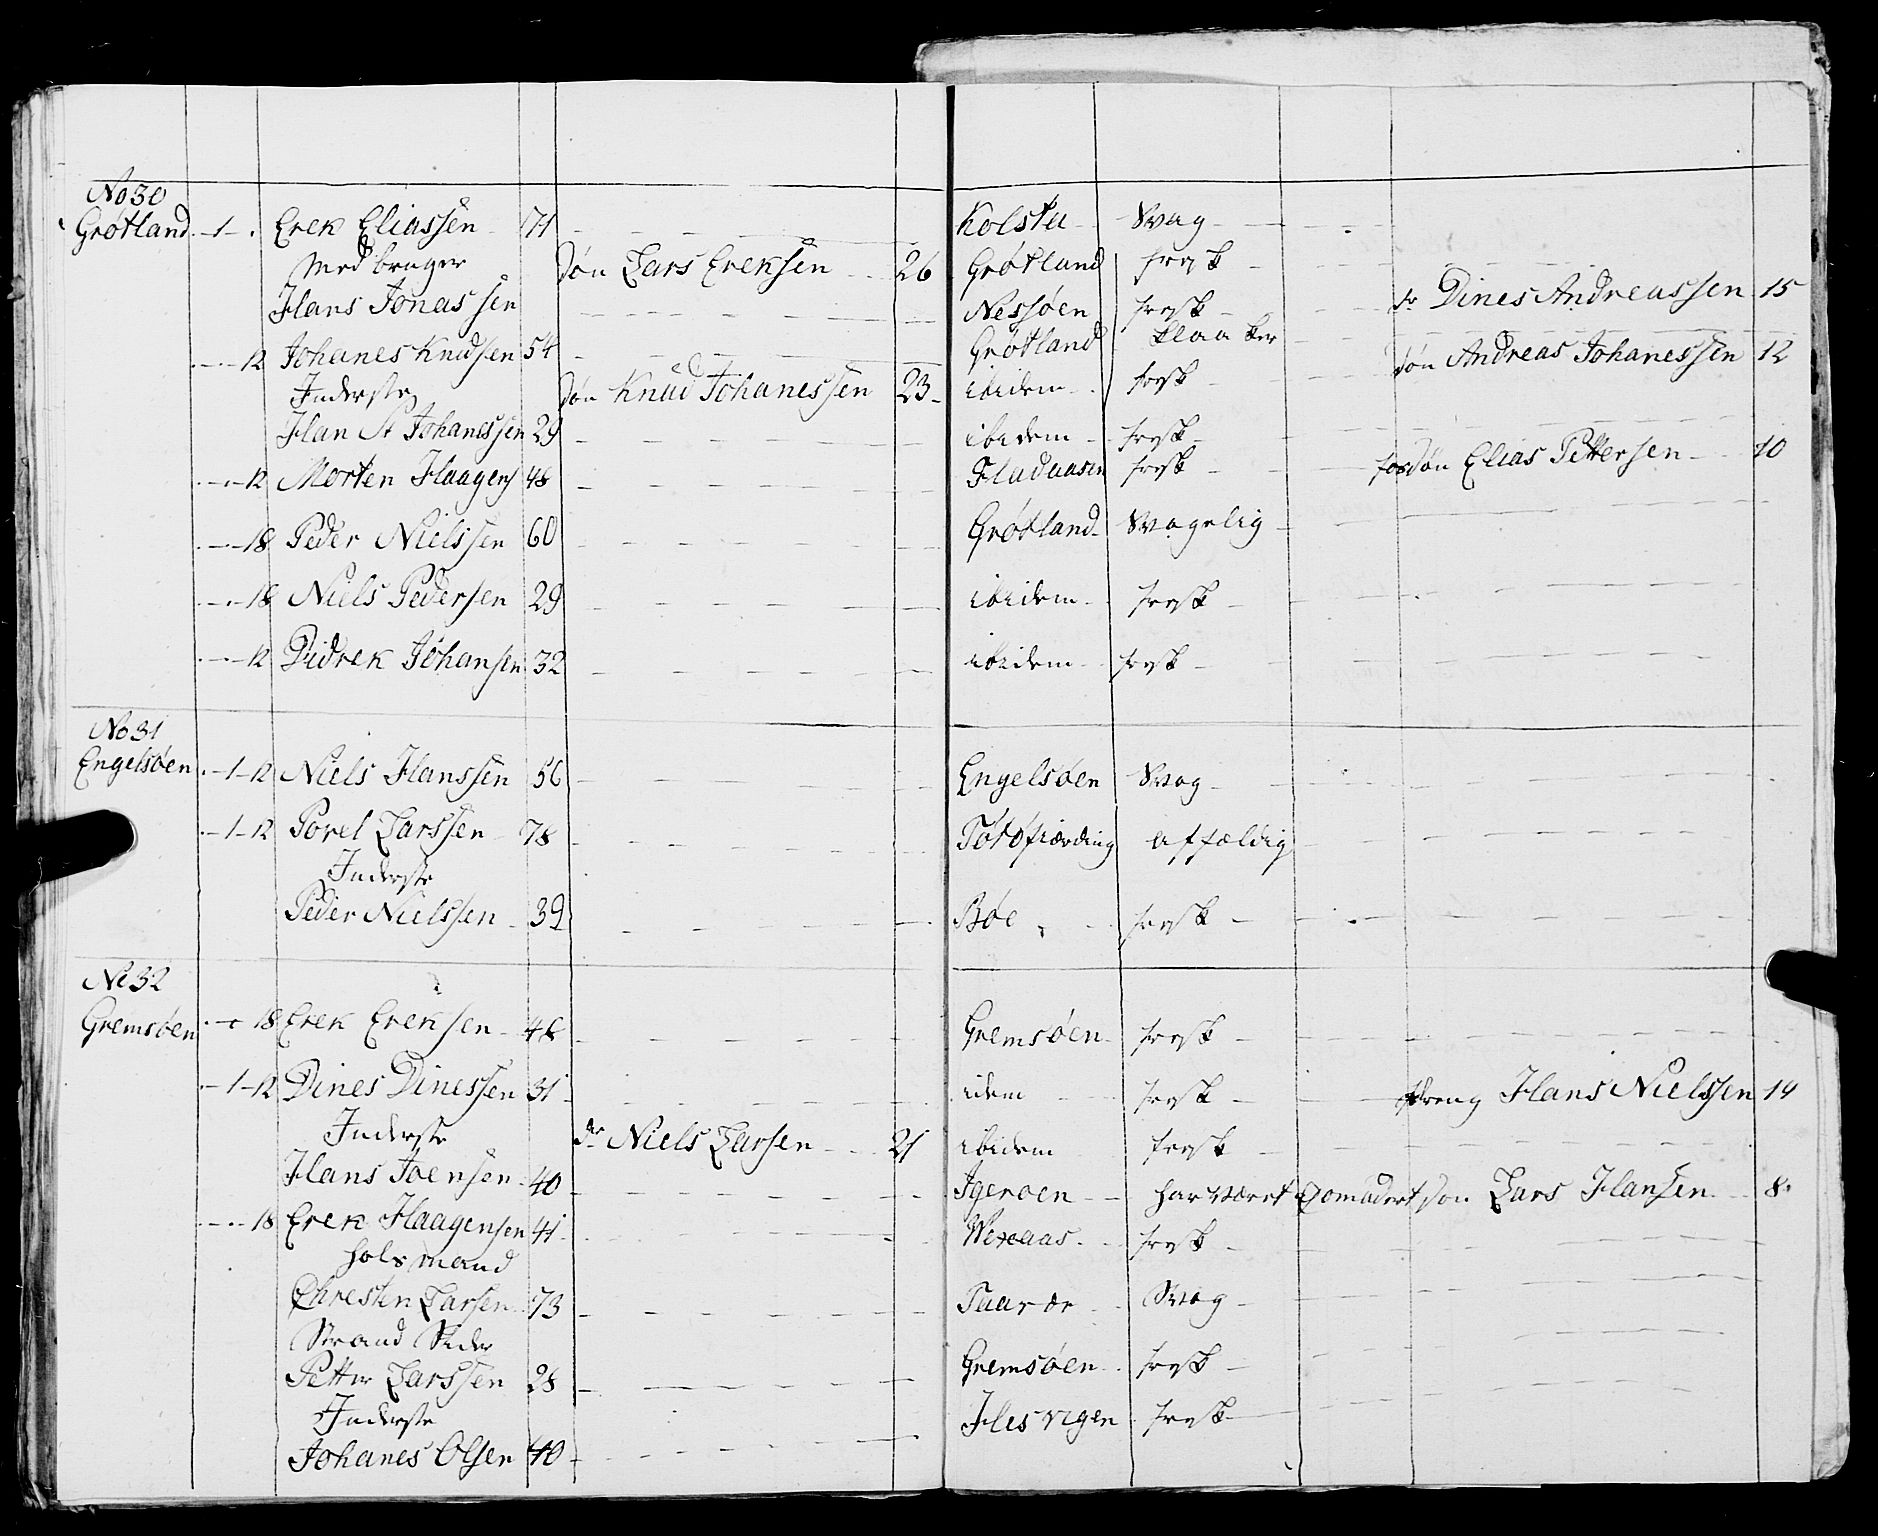 No 30
Grøtland 1 Erek Eliassen 71 Kolstu Svag
Med bruger Søn Lars Ereksen 26 Grøtland frisk
Hans Jonassen Nessøen frisk dr Dines Andreassen 15
12 Johanes Knudsen 54 Grøtland Klaaker
Inderste Søn Knud Johanessen 23 ibidem frisk Søn Andreas Johanessen 12
Han St Johanessen 29 ibidem frisk
12 Morten Haagens 48 Fladaasen frisk fosSøn Elias Pettersen 10
18 Peder Nielssen 60 Grøtland Svagelig
18 Niels Pedersen 29 ibidem frisk
12 Didrek Johansen 32 ibidem frisk
No 31
Engelsøen 1 12 Niels Hanssen 56 Engelsøen Svag
1 12 Povel Larssen 78 affældig
Inderste
Peder Nielssen 39 Bøe frisk
No 32
Gremsøen 18 Erek Ereksen 48 Gremsøen frisk
1 12 Dines Dinessen 31 idem frisk dreng Hans Nielssen 14
Inderste dr Niels Larsen 21 ibidem frisk
Hans Joensen 40 Igeroen har været Comadert Søn Lars Hansen 8
18 Erek Haagensen 41 Wexaas frisk
Holsmand
Chresten Larsen 73 Svag
Strand Sider
Petter Larssen 28 Gremsøen frisk
Inderste
Johanes Olsen 40 Hesvigen frisk